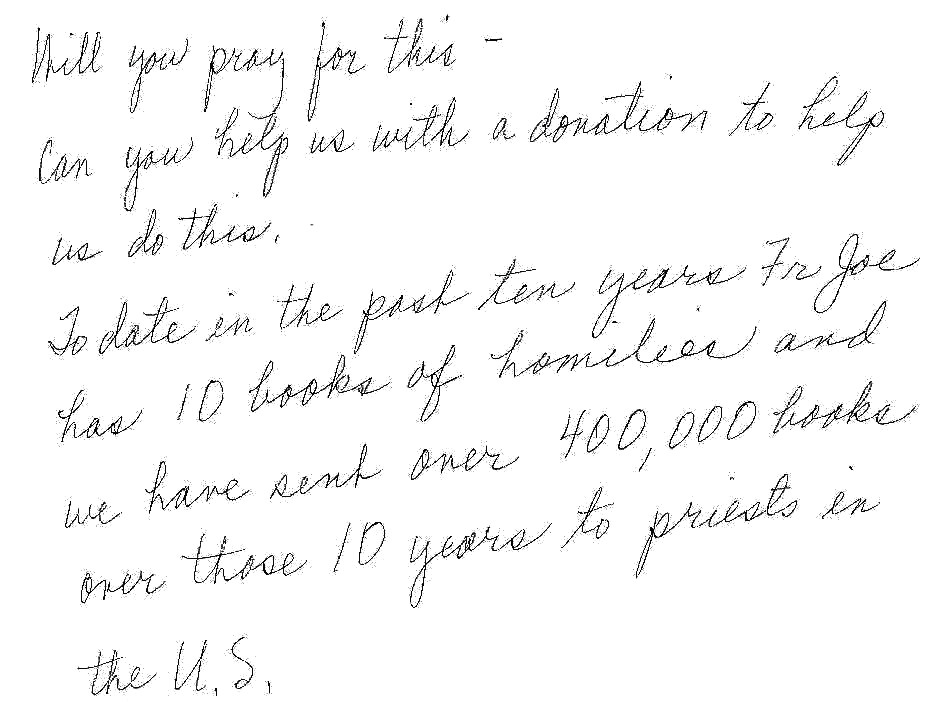 Will you pray for this -
Can you help us with a donation to help
us do this.
To date in the past ten years Fr Joe
has 10 books of homilies and
we have sent over 400,000 books
over those 10 years to priests in
the U.S.